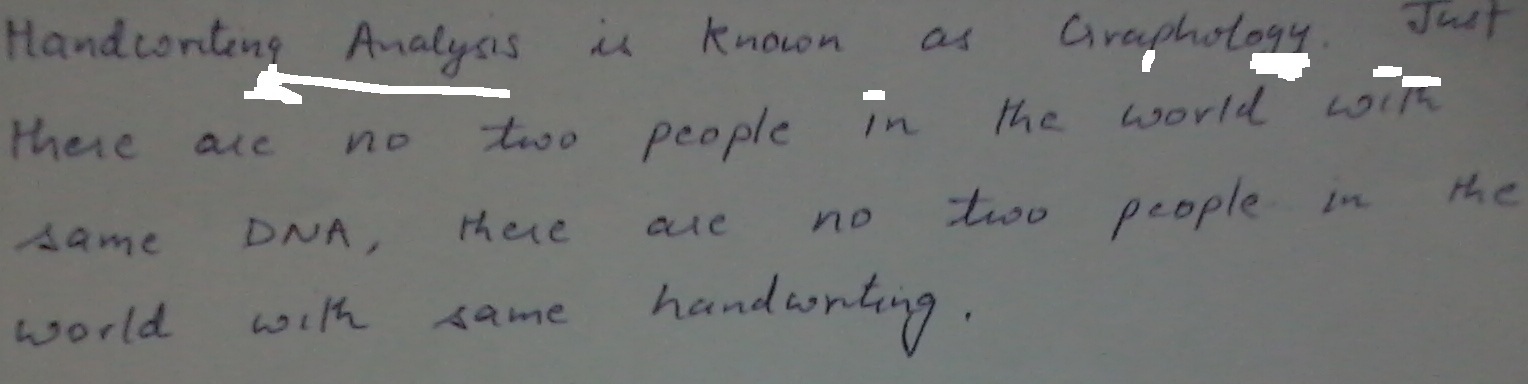 Handwriting Analysis is known as Graphology. Just
there are no two people in the world with
same DNA, there are no two people in the
world with same handwriting.